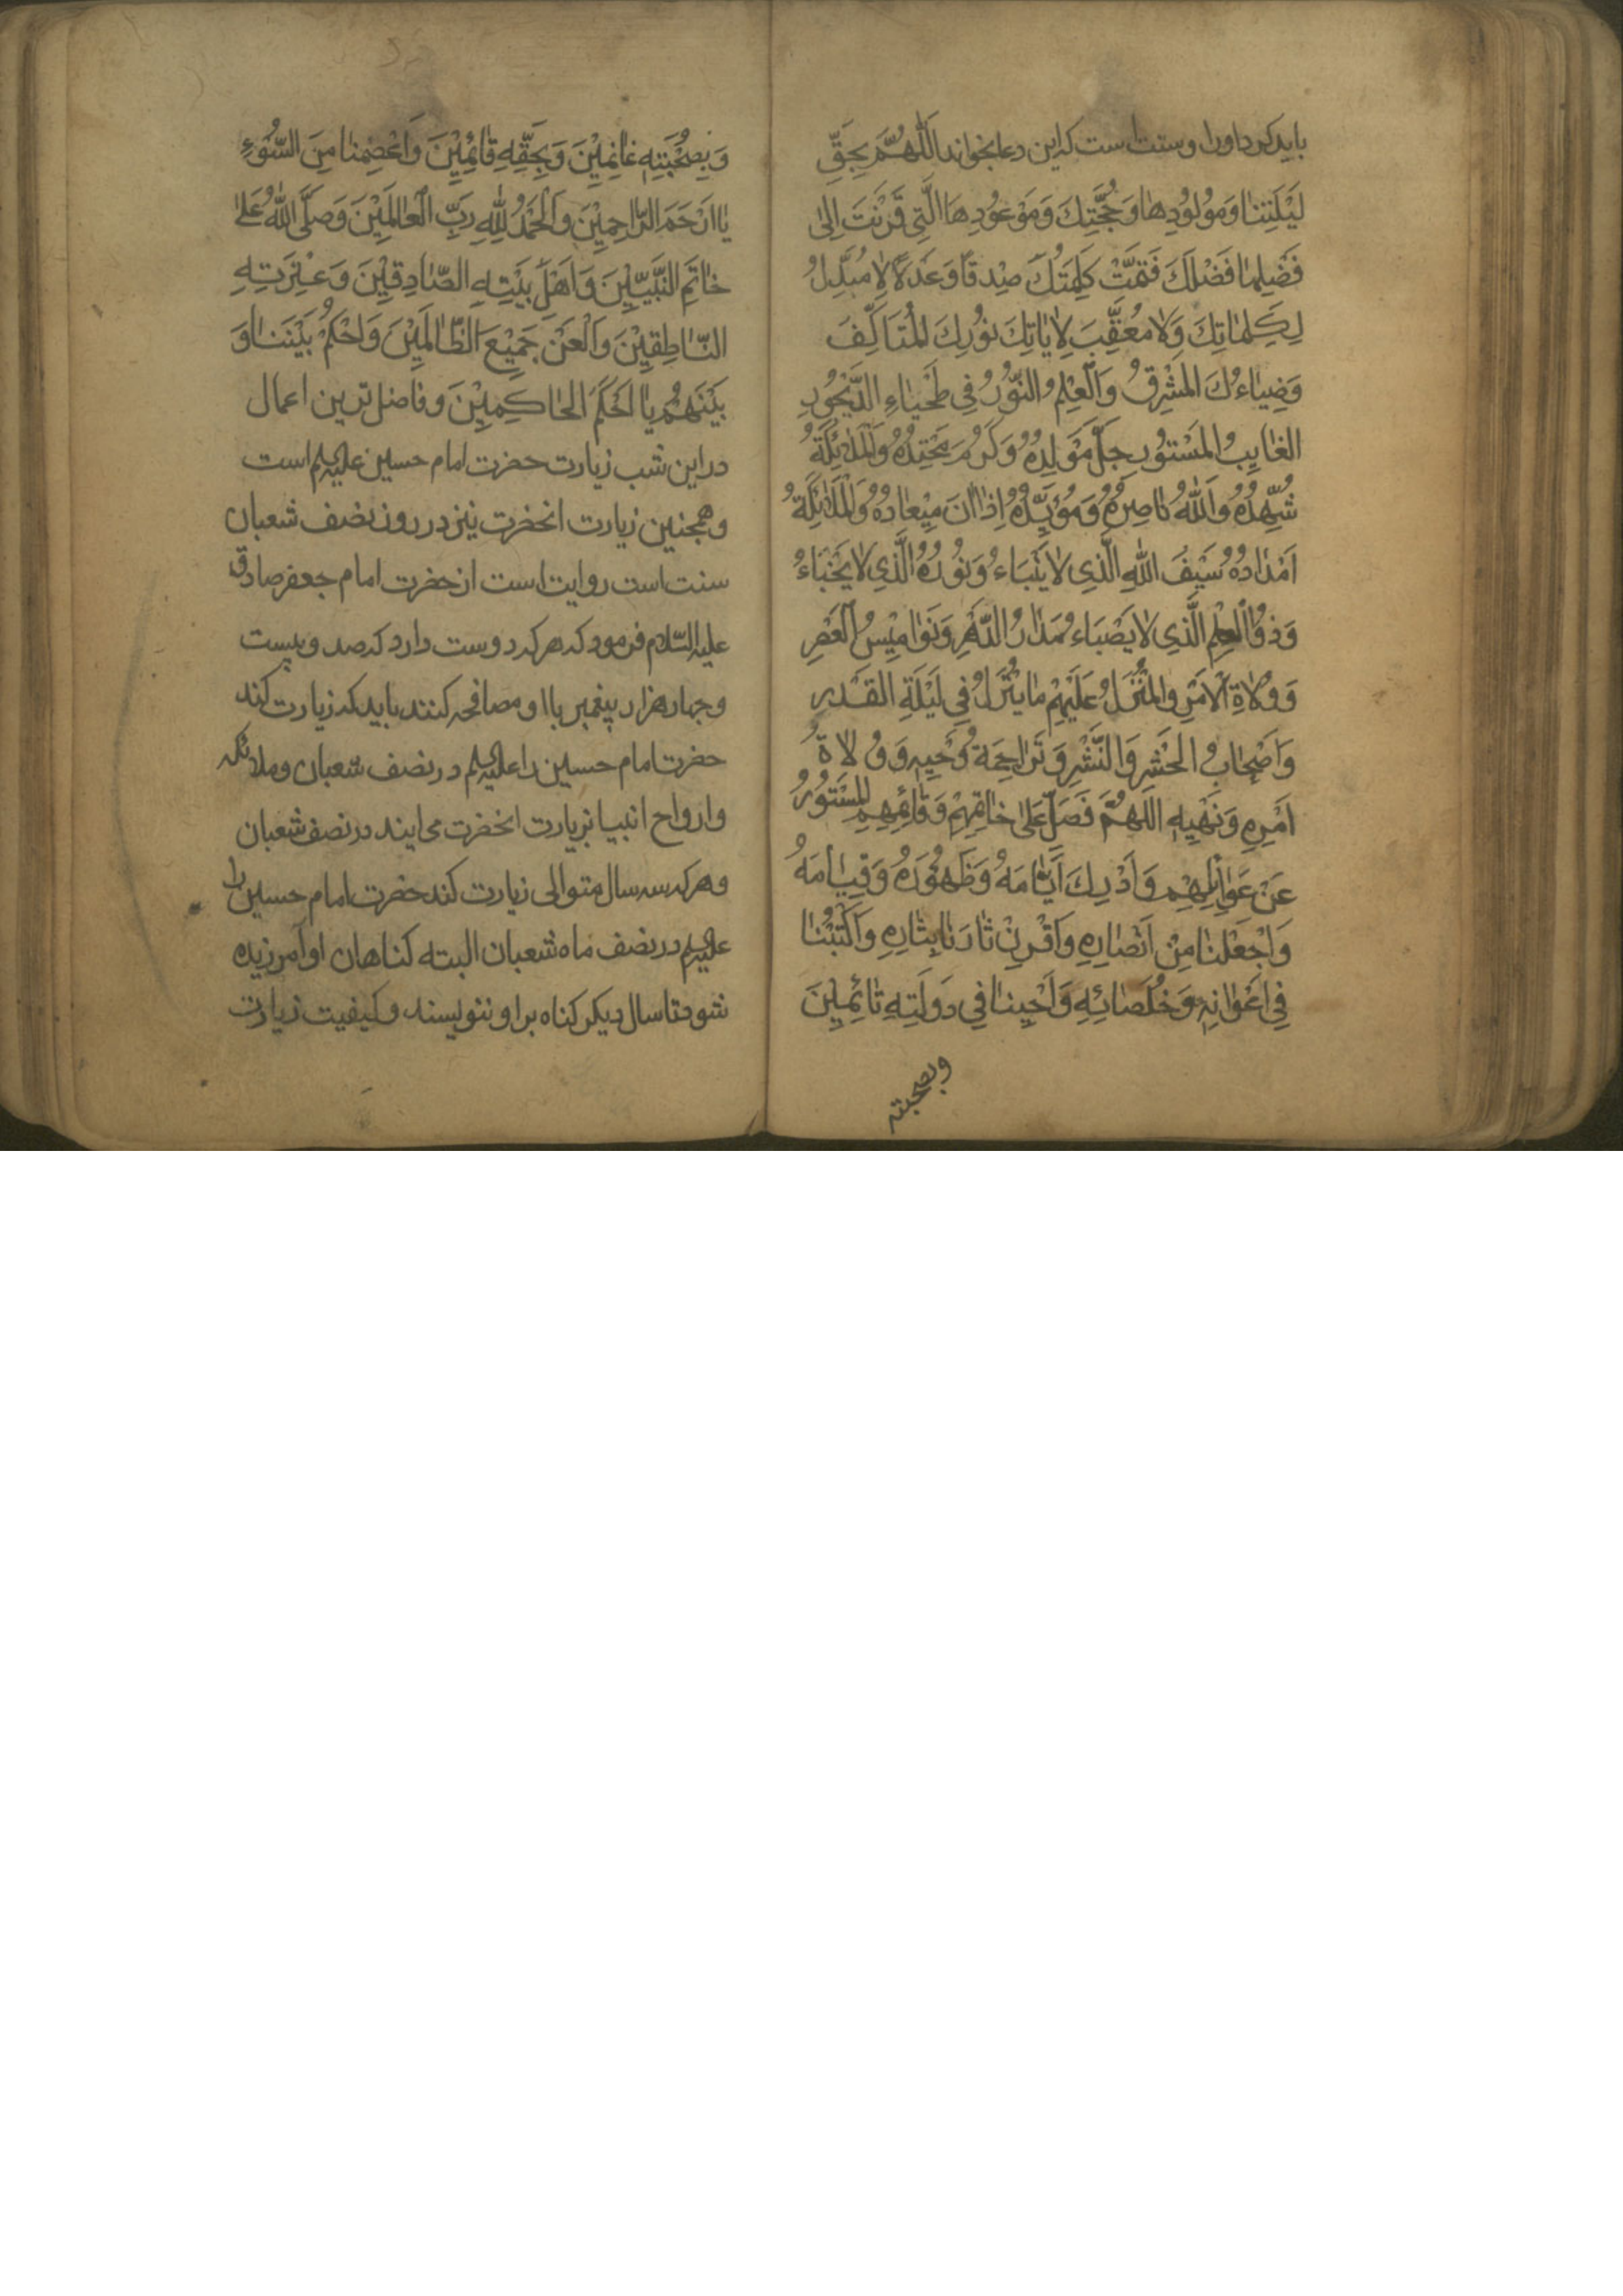 باید کرد او را و سنت است که این دعا بخواند اَللّٰهُمَّ بِحَقِّ
لَیْلَتِنٰا وَمَوْلُوْدِهٰا وَحُجَّتِكَ وَمَوْعُوْدِهَا الَّتِی قَرَنْتَ اِلیٰ
فَضْلِهٰا فَضْلَكَ فَتَمَّتْ كَلِمَتُكَ صِدْقًا وَعَدْلًا لٰا مُبَدِّلَ
لِكَلِمٰاتِكَ وَلٰا مُعَقِّبَ لِاٰیٰاتِكَ نُوْرُكَ الْمُتَاَلِّفُ
وَضِیٰاءُكَ الْمُشْرِقُ وَالْعِلْمُ النُّوْرُ فِی طَخْیٰاءِ الدَّیْجُوْرِ
الْغٰایِبُ الْمَسْتُوْرُ جَلَّ مَوْلِدُهُ وَكَرُمَ مَحْتِدُهُ وَالْمَلٰائِكَةُ
شُهَّدُهُ وَاللّٰهُ نٰاصِرُهُ وَمُؤَیِّدُهُ اِذٰا اٰنَ مِیْعٰادُهُ وَالْمَلٰائِكَةُ
اَمْدٰادُهُ سَیْفُ اللّٰهِ الَّذِی لٰا یَنْبَاءُ وَنُوْرُهُ الَّذِی لٰا یَخْبَاءُ
وَذُوالْحِلْمِ الَّذِی لٰا یَصْبَاءُ مَدٰارُ الدَّهْرِ وَنَوٰامِیْسُ الْعَصْرِ
وَوُلٰاةُ الْاَمْرِ وَالْمُنَزَّلُ عَلَیْهِمْ مٰا یَنْزِلُ فِی لَیْلَةِ الْقَدْرِ
وَاَصْحٰابُ الْحَشْرِ وَالنَّشْرِ وَتَرٰاجِمَةُ وَحْیِهِ وَوُلٰاةُ
اَمْرِهِ وَنَهْیِهِ اَللّٰهُمَّ فَصَلِّ عَلیٰ خٰاتِمِهِمْ وَقٰائِمِهِمِ الْمَسْتُوْرُ
عَنْ عَوٰالِمِهِمْ وَاَدْرِكْ اَیّٰامَهُ وَظُهُوْرَهُ وَقِیٰامَهُ
وَاجْعَلْنٰا مِنْ اَنْصٰارِهِ وَاقْرِنْ ثٰارَنٰا بِثٰارِهِ وَاكْتُبْنٰا
فِی اَعْوٰانِهِ وَخُلَصٰائِهِ وَاَحْیِنٰا فِی دَوْلَتِهِ نٰائِمِیْنَ
وبصحبته
وَبِصُحْبَتِهِ غٰانِمِیْنَ وَبِحَقِّهِ قٰائِمِیْنَ وَاعْصِمْنٰا مِنَ السُّوْءِ
یٰا اَرْحَمَ الرّٰاحِمِیْنَ وَالْحَمْدُ لِلّٰهِ رَبِّ الْعٰالَمِیْنَ وَصَلَّی اللّٰهُ عَلیٰ
خٰاتَمِ النَّبِیّیْنَ وَاَهْلِ بَیْتِهِ الصّٰادِقِیْنَ وَعِتْرَتِهِ
النّٰاطِقِیْنَ وَالْعَنْ جَمِیْعَ الظّٰالِمِیْنَ وَاحْكُمْ بَیْنَنٰا وَ
بَیْنَهُمْ یٰا اَحْكَمَ الْحٰاكِمِیْنَ و فاضل ترین اعمال
در این شب زیارت حضرت امام حسین علیه السلم است
و همجنین زیارت انحضرت نیز در روز نصف شعبان
سنت است روایت است از حضرت امام جعفر صادق
علیه السّلام فرمود که هر که دوست دارد که صد و بیست
و جهار هزار پیغمبر با او مصافحه کنند باید که زیارت کند
حضرت امام حسین را علیه السلم در نصف شعبان و ملائکه
و ارواح انبیا بزیارت انحضرت می ایند در نصف شعبان
و هر که سه سال متوالی زیارت کند حضرت امام حسین را
علیه السلم در نصف ماه شعبان البته کناهان او آمرزیده
شود تا سال دیکر کناه بر او ننویسند و کیفیت زیارت